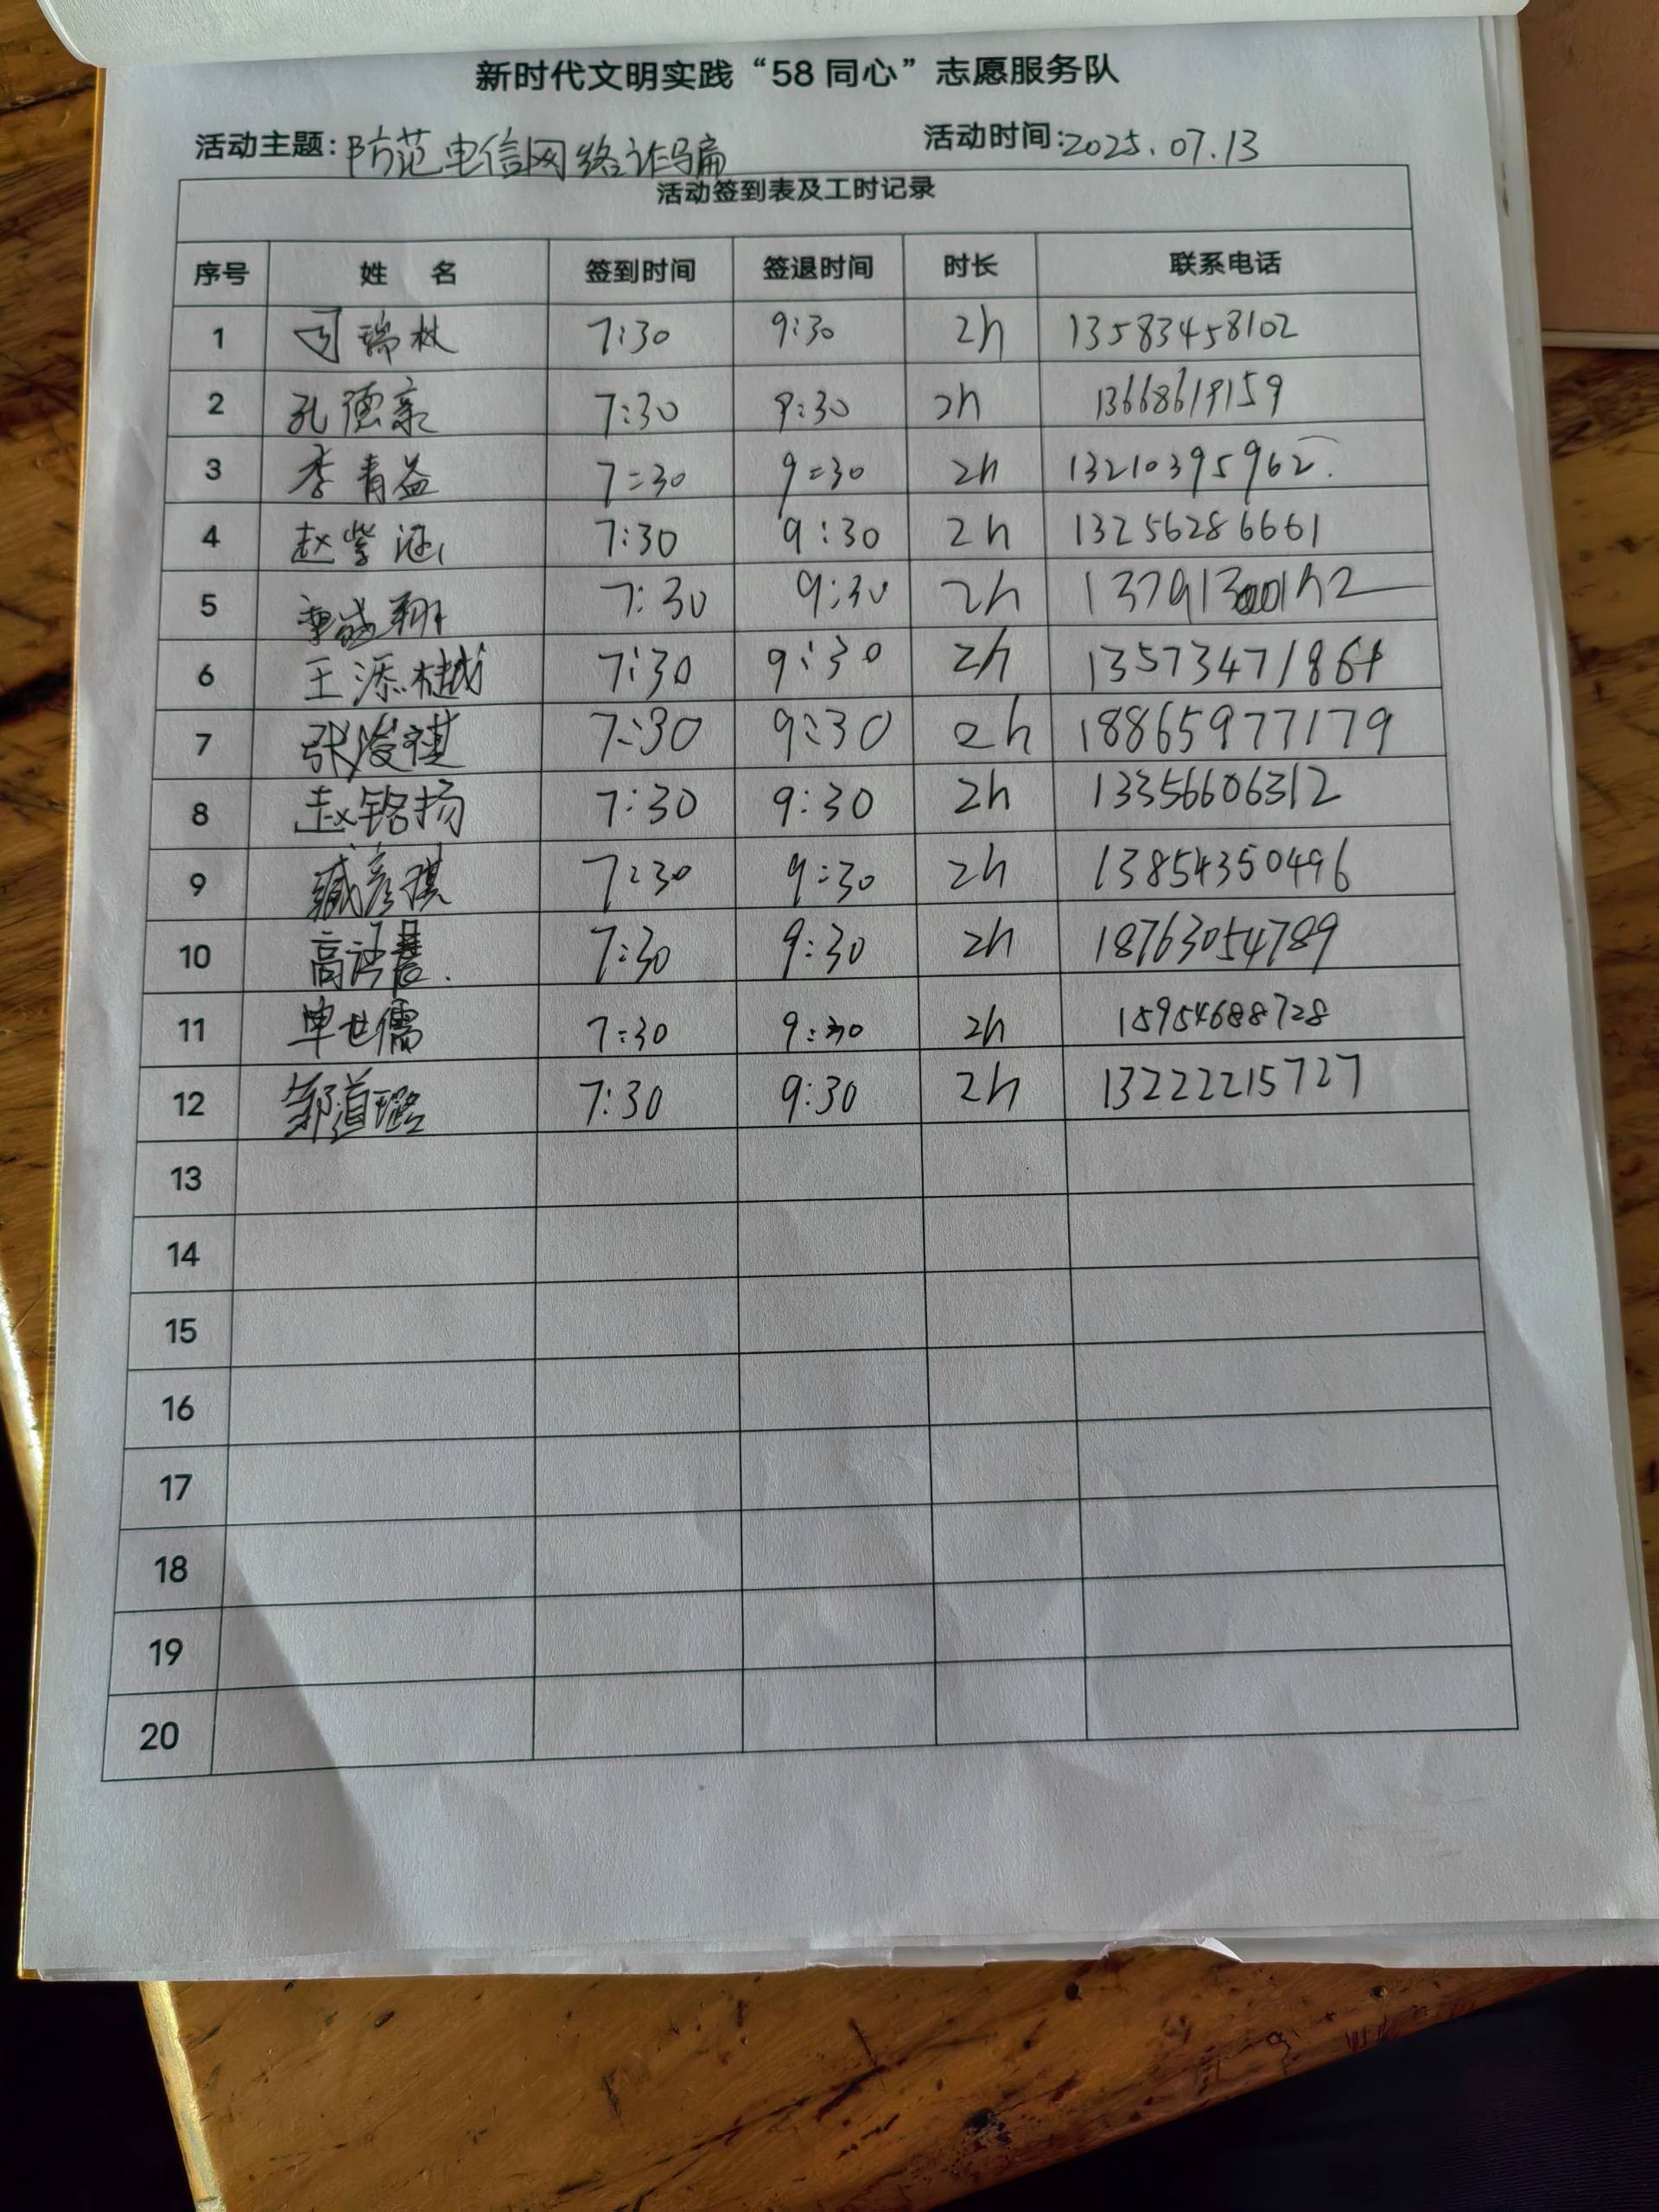 新时代文明实践“58同心”志愿服务队
活动主题:防范电信网络诈骗 活动时间:2025.07.13
活动签到表及工时记录
序号 姓 名 签到时间 签退时间 时长 联系电话
1 瑞 7:30 9:30 2h 13583458102
2 孔德亲 7:30 9:30 2h 13668619159
3 李青益 7:30 9:30 2h 13210395962.
4 赵紫涵 7:30 9:30 2h 13256286661
5 翔 7:30 9:30 2h
6 王添樾 7:30 9:30 2h
7 张浚祺 7:30 9:30 2h 18865977179
8 赵铭扬 7:30 9:30 2h 13356606312
9 臧彦琪 7:30 9:30 2h 13854350496
10 高语晨. 7:30 9:30 2h 18763054789
11 单世儒 7:30 9:30 2h 15954688728
12 邹道璐 7:30 9:30 2h 13222215727
13
14
15
16
17
18
19
20